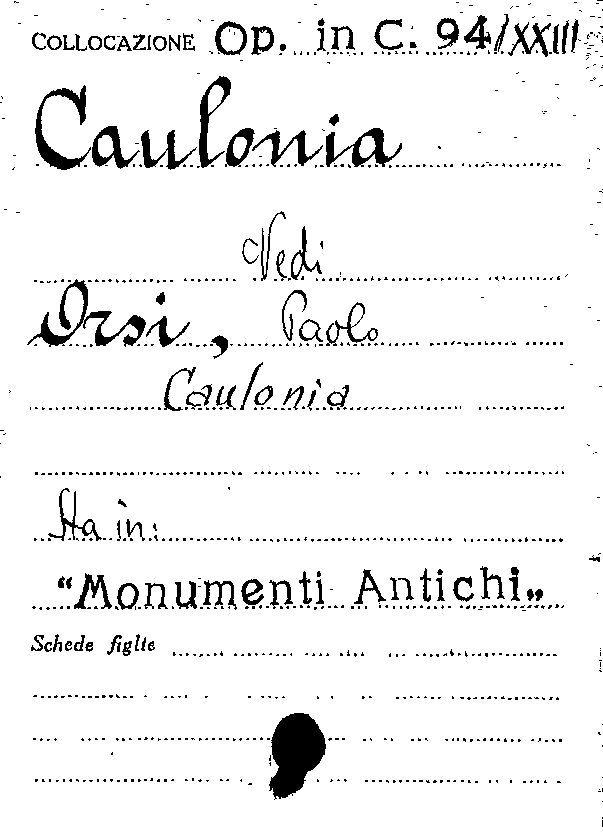 COLLOCAZIONE Op. in C. 94/XXIII
Caulonia
Vedi
Orsi, Paolo
Caulonia
Sta in:
“Monumenti Antichi„
Schede figlie